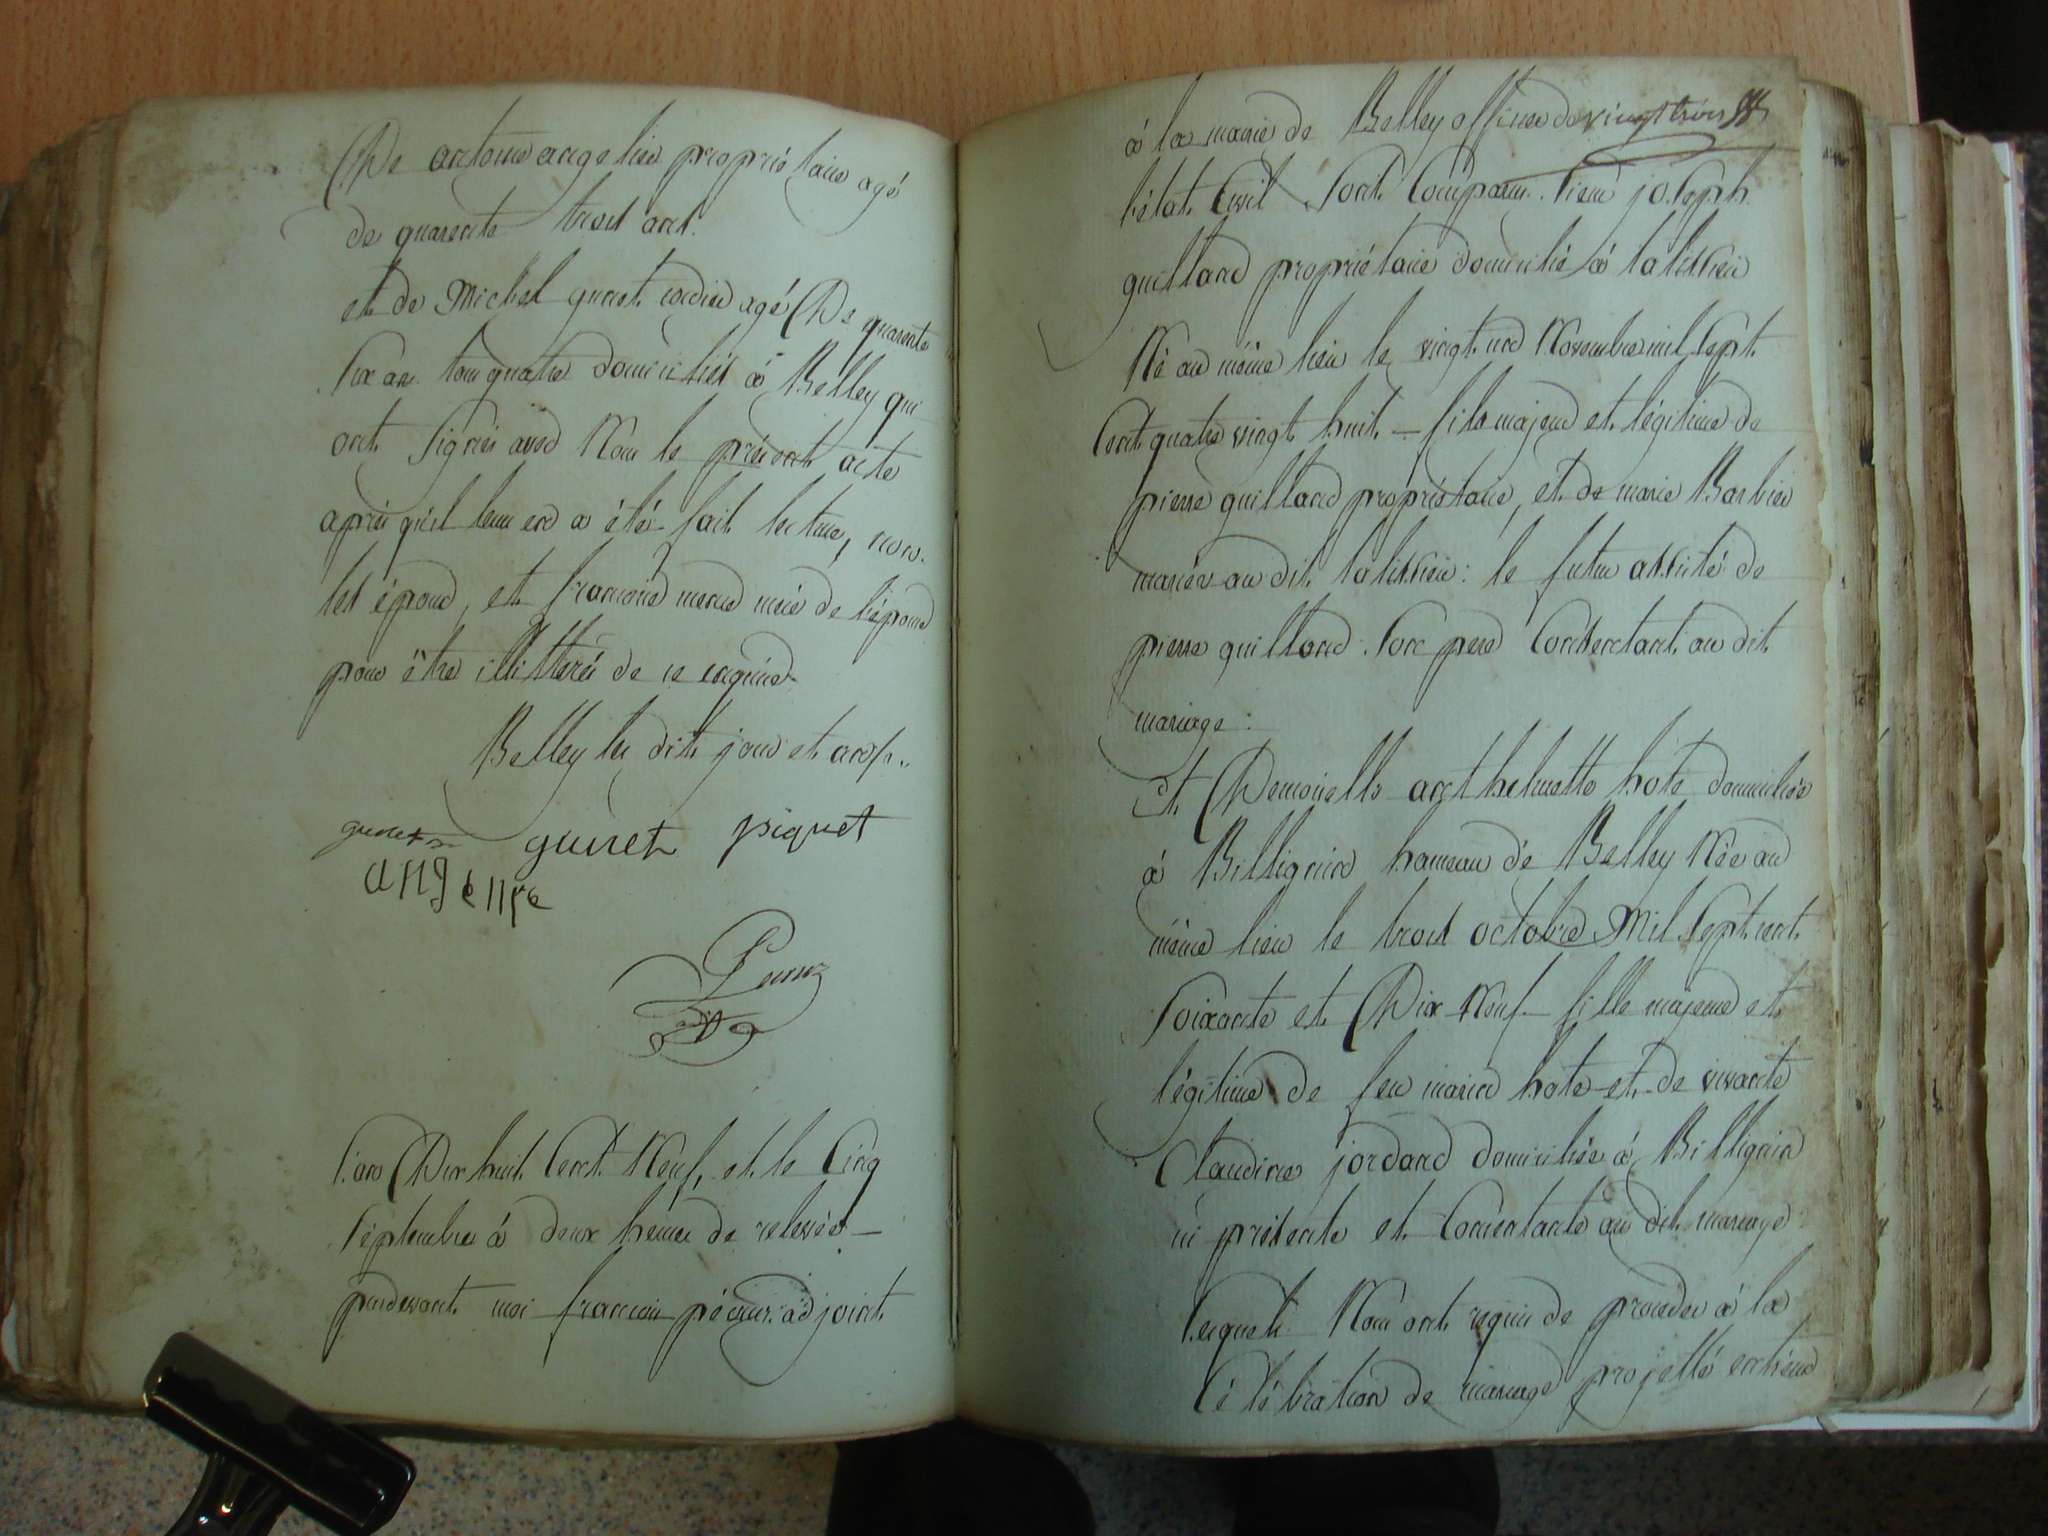 De antoine angelier propriétaire agé
de quarente troit ant.
et de Michel gunet cordier agé De quarente
six an tous quatre domiciliés à Belley qui
ont signés avec Nous le présent acte
après qu'il leur en a été fait lecture, non
les époux, et francoise mère de l'épouse
pour être illitterés de ce requis
Belley les dit jour et an
gunet gunet piquet
angelier
l'an Dix huit Cent Neuf, et le Cinq
septembre à deux heures de relevée
pardevant moi francois adjoint
à la mairie de Belley officier de vingt trois
l'état Civil sont Comparu sieur joseph
guilland propriétaire domicilié à talissieu
Né au même lieu le vingt un Novembre mil sept
Cent quatre vingt huit - fils majeur et légitime de
pierre guilland propriétaire, et de marie Barbier
mariés au dit talissieu: le futur assisté de
pierre guilland son pere Consentant au dit
mariage:
Et Demoiselle anthelmette hote domiciliée
à Billignin hameau de Belley Née au
même lieu le troit octobre Mil sept cent
soixante et Dix Neuf - fille majeure et
légitime de feu marin hote et de vivante
Claudine jordand domiciliée à Billignin
ici présente et Consentante au dit mariage
lesquels Nous ont requis de proceder à la
Célébration de mariage projetté entr'eux